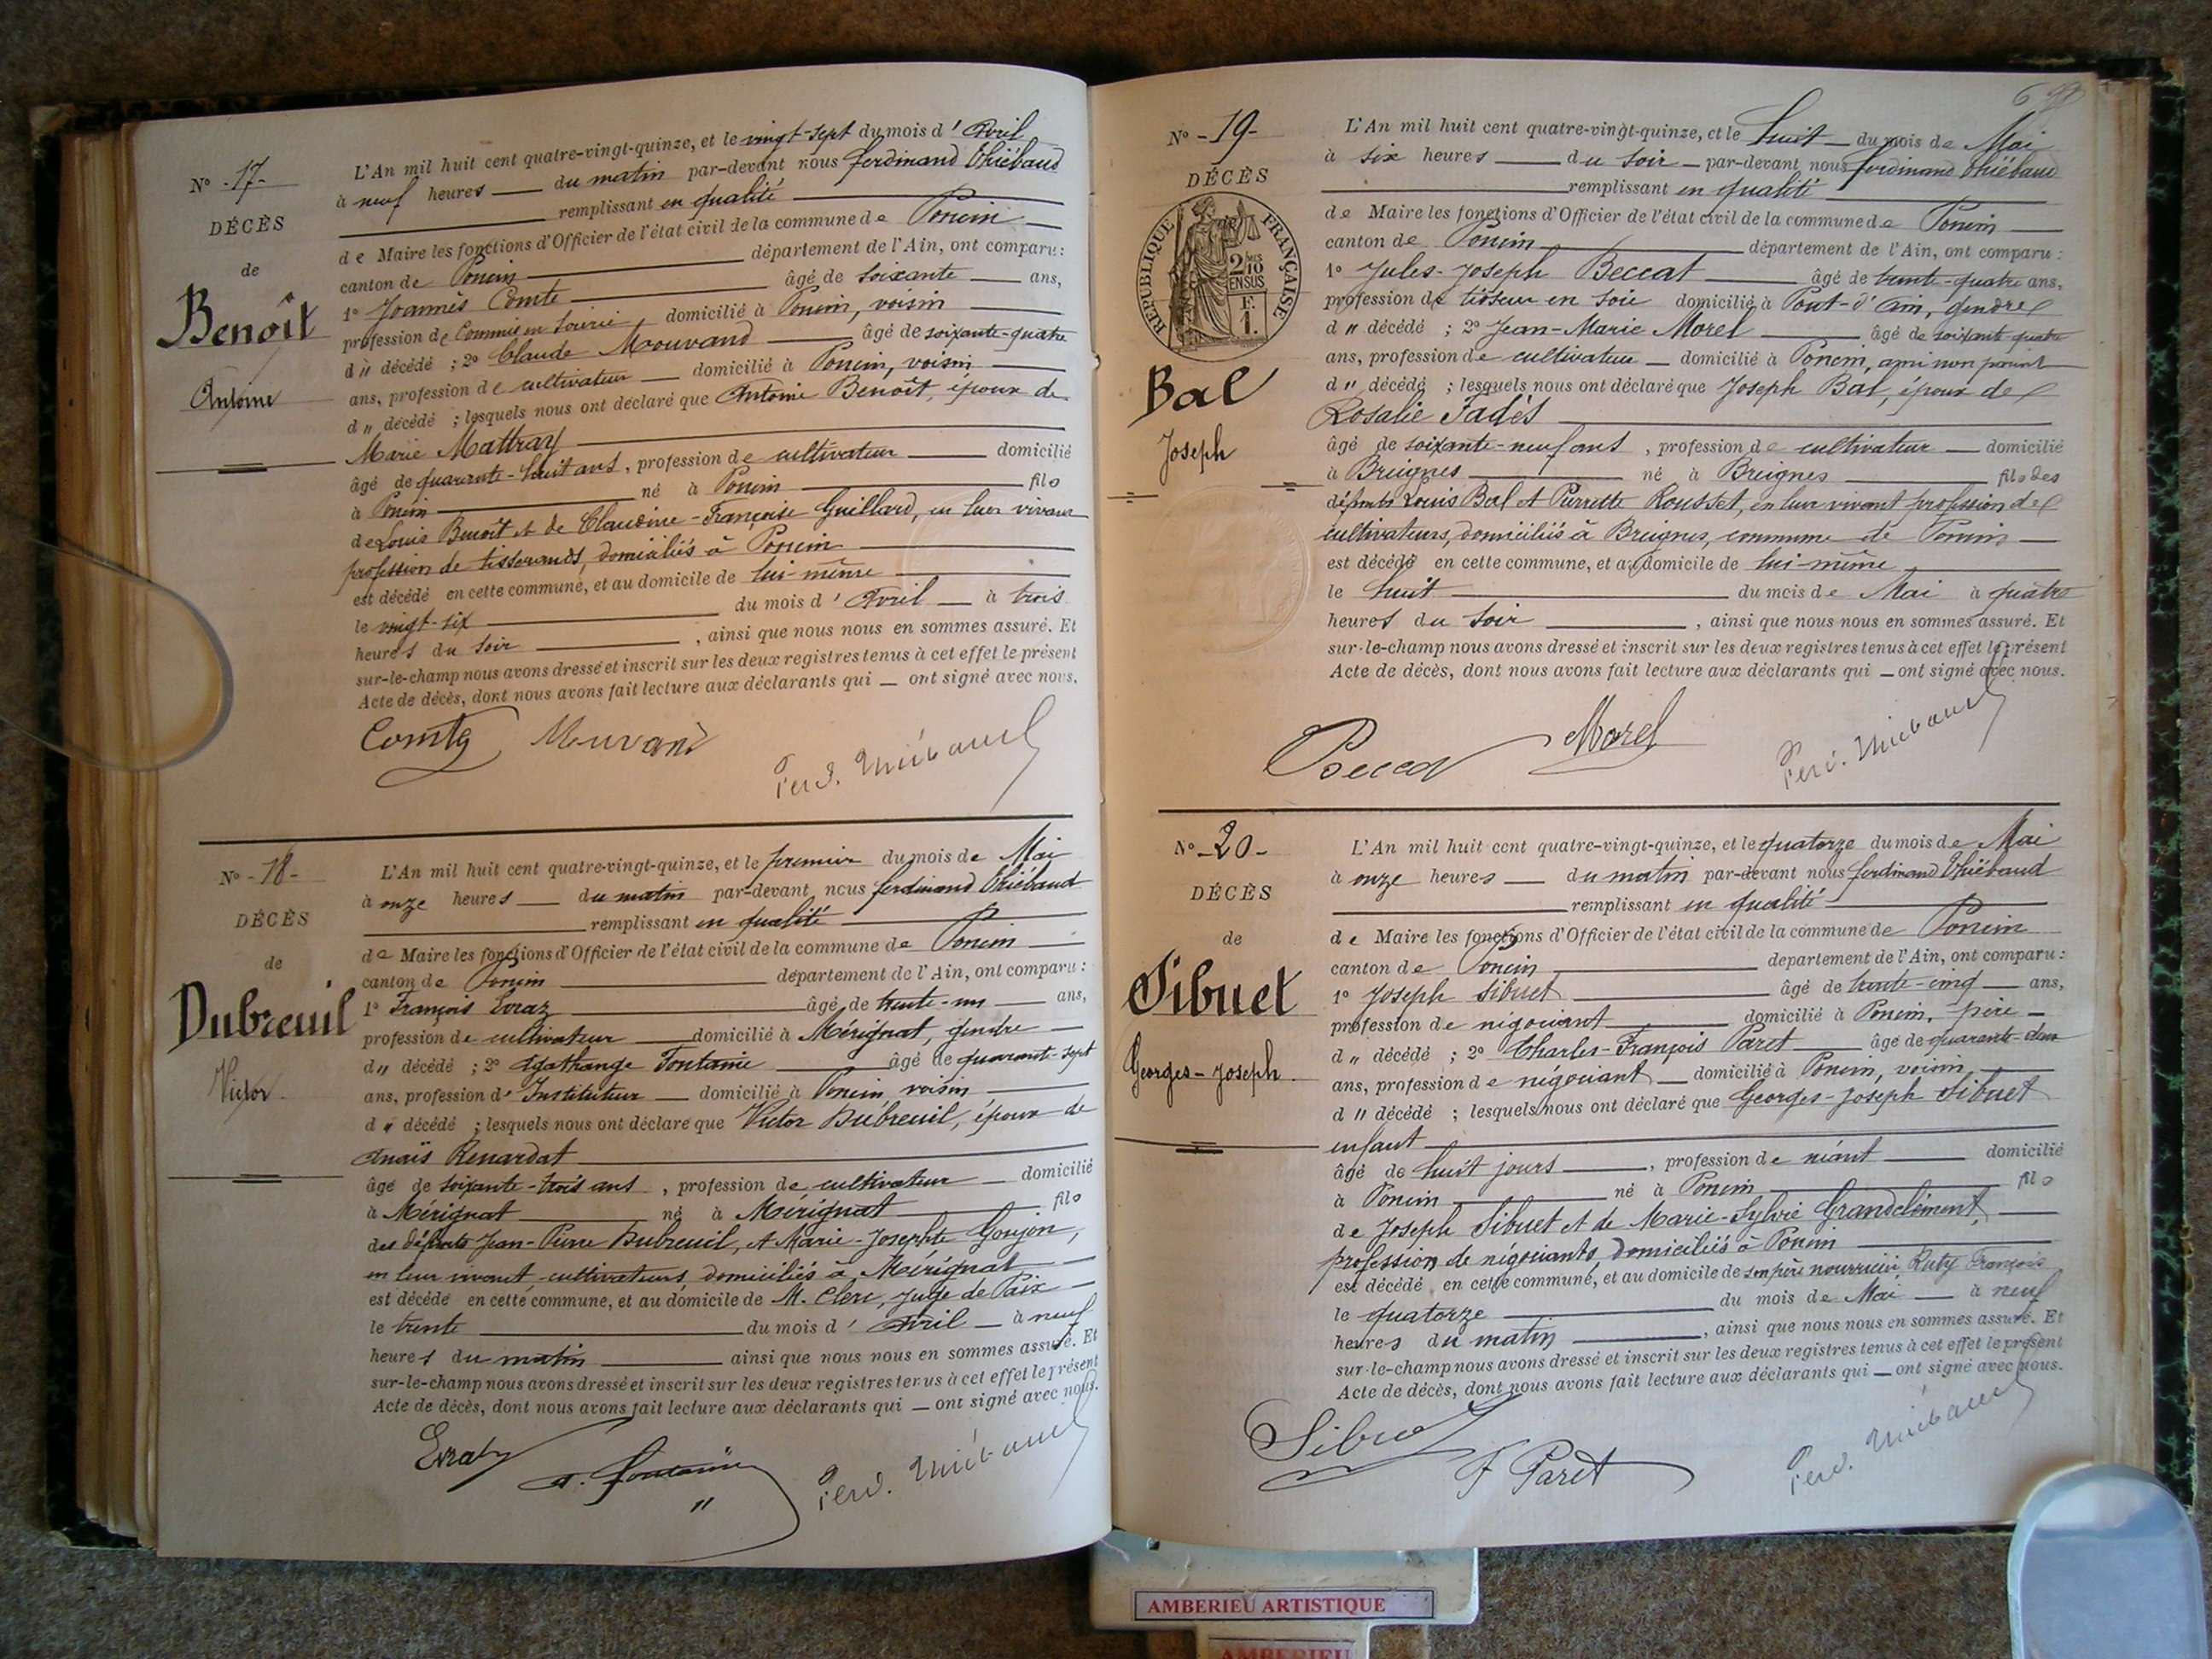 N° -17-
DÉCÈS
de
Benoît
Antoine
L'An mil huit cent quatre-vingt-quinze, et le vingt-sept du mois d' Avril
à neuf heures — du matin par-devant nous ferdinand Thiébaud
remplissant en qualité
de Maire les fonctions d'Officier de l'état civil de la commune de Poncin
canton de Poncin département de l'Ain, ont comparu:
1° Joannès Comte âgé de soixante ans,
profession de Commis en soierie, domicilié à Poncin, voisin
d" décédé ; 2° Claude Mouvand âgé de soixante-quatre
ans, profession de cultivateur — domicilié à Poncin, voisin
d" décédé ; lesquels nous ont déclaré que Antoine Benoît, époux de
Marie Mattray
âgé de quarante-huit ans, profession de cultivateur domicilié
à Poncin né à Poncin fils
de Louis Benoît et de Claudine-Françoise Guillard, en leur vivant
profession de tisserands, domiciliés à Poncin
est décédé en cette commune, et au domicile de lui-même
le vingt-six du mois d' Avril — à trois
heures du soir , ainsi que nous nous en sommes assuré. Et
sur-le-champ nous avons dressé et inscrit sur les deux registres tenus à cet effet le présent
Acte de décès, dont nous avons fait lecture aux déclarants qui — ont signé avec nous.
Comte Mouvand Ferd. Thiébaud
N° -18-
DÉCÈS
de
Dubreuil
Victor
L'An mil huit cent quatre-vingt-quinze, et le premier du mois de Mai
à onze heures — du matin par-devant nous ferdinand Thiébaud
remplissant en qualité
de Maire les fonctions d'Officier de l'état civil de la commune de Poncin
canton de Poncin département de l'Ain, ont comparu :
1° François Evraz âgé de trente-un ans,
profession de cultivateur domicilié à Mérignat, gendre
d" décédé ; 2° Agathange Fontaine âgé de quarante-sept
ans, profession d' Instituteur — domicilié à Poncin voisin
d" décédé ; lesquels nous ont déclaré que Victor Dubreuil, époux de
Anaïs Renardat
âgé de soixante-trois ans , profession de cultivateur — domicilié
à Mérignat né à Mérignat fils
des défunts Jean-Pierre Dubreuil, et Marie-Josephte Goujon,
en leur vivant cultivateurs domiciliés à Mérignat
est décédé en cette commune, et au domicile de M. Clerc, Juge de Paix
le trente du mois d' Avril — à neuf
heures du matin ainsi que nous nous en sommes assuré. Et
sur-le-champ nous avons dressé et inscrit sur les deux registres tenus à cet effet le présent
Acte de décès, dont nous avons fait lecture aux déclarants qui — ont signé avec nous.
Evraz A. Fontaine Ferd. Thiébaud
N° -19-
DÉCÈS
RÉPUBLIQUE FRANÇAISE
2/10
EN SUS
F.
1.
Bal
Joseph
L'An mil huit cent quatre-vingt-quinze, et le huit — du mois de Mai
à six heures — du soir — par-devant nous ferdinand Thiébaud
remplissant en qualité
de Maire les fonctions d'Officier de l'état civil de la commune de Poncin
canton de Poncin département de l'Ain, ont comparu :
1° Jules-Joseph Beccat âgé de trente-quatre ans,
profession de tisseur en soie domicilié à Pont-d'Ain, gendre
d" décédé ; 2° Jean-Marie Morel âgé de soixante-quatre
ans, profession de cultivateur — domicilié à Poncin, ami non parent
d" décédé ; lesquels nous ont déclaré que Joseph Bal, époux de
Rosalie Tadès
âgé de soixante-neuf ans , profession de cultivateur — domicilié
à Breignes né à Breignes fils des
défunts Louis Bal et Pierrette Rousset, en leur vivant profession de
cultivateurs, domiciliés à Breignes, commune de Poncin —
est décédé en cette commune, et au domicile de lui-même
le huit du mois de Mai à quatre
heures du soir , ainsi que nous nous en sommes assuré. Et
sur-le-champ nous avons dressé et inscrit sur les deux registres tenus à cet effet le présent
Acte de décès, dont nous avons fait lecture aux déclarants qui — ont signé avec nous.
Beccat Morel Ferd. Thiébaud
N° -20-
DÉCÈS
de
Sibuet
Georges-Joseph
L'An mil huit cent quatre-vingt-quinze, et le quatorze du mois de Mai
à onze heures — du matin par-devant nous ferdinand Thiébaud
remplissant en qualité
de Maire les fonctions d'Officier de l'état civil de la commune de Poncin
canton de Poncin département de l'Ain, ont comparu :
1° Joseph Sibuet âgé de trente-cinq ans,
profession de négociant domicilié à Poncin, père —
d" décédé ; 2° Charles-François Paret âgé de quarante-deux
ans, profession de négociant — domicilié à Poncin, voisin
d" décédé ; lesquels nous ont déclaré que Georges-Joseph Sibuet
enfant
âgé de huit jours , profession de néant domicilié
à Poncin né à Poncin fils
de Joseph Sibuet et de Marie-Sylvie Grandclément,
profession de négociants, domiciliés à Poncin
est décédé en cette commune, et au domicile de son père nourricier Ruby François
le quatorze du mois de Mai — à neuf
heures du matin , ainsi que nous nous en sommes assuré. Et
sur-le-champ nous avons dressé et inscrit sur les deux registres tenus à cet effet le présent
Acte de décès, dont nous avons fait lecture aux déclarants qui — ont signé avec nous.
Sibuet F Paret Ferd. Thiébaud
AMBERIEU ARTISTIQUE
AMBERIEU